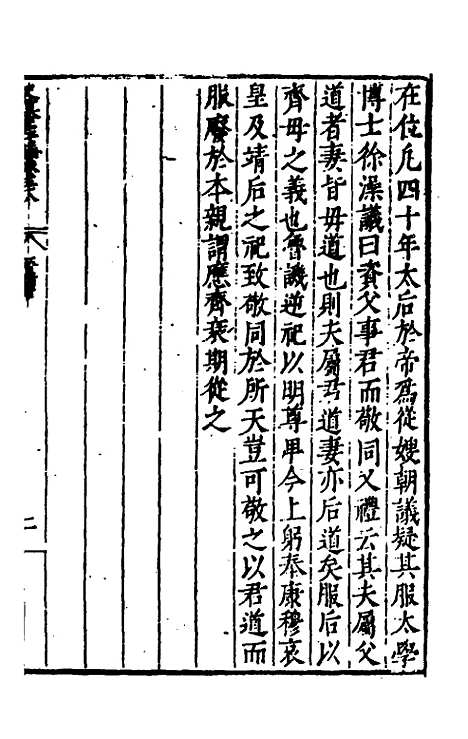 在位凡四十年太后於帝爲從嫂朝議疑其服太學
博士徐藻議曰資父事君而敬同又禮云其夫屬父
道者妻皆母道也則夫屬君道妻亦后道矣服后以
齊母之義也魯譏逆祀以明尊卑今上躬奉康穆哀
皇及靖后之祀致敬同於所天豈可敬之以君道而
服廢於本親謂應齊衰期從之
二